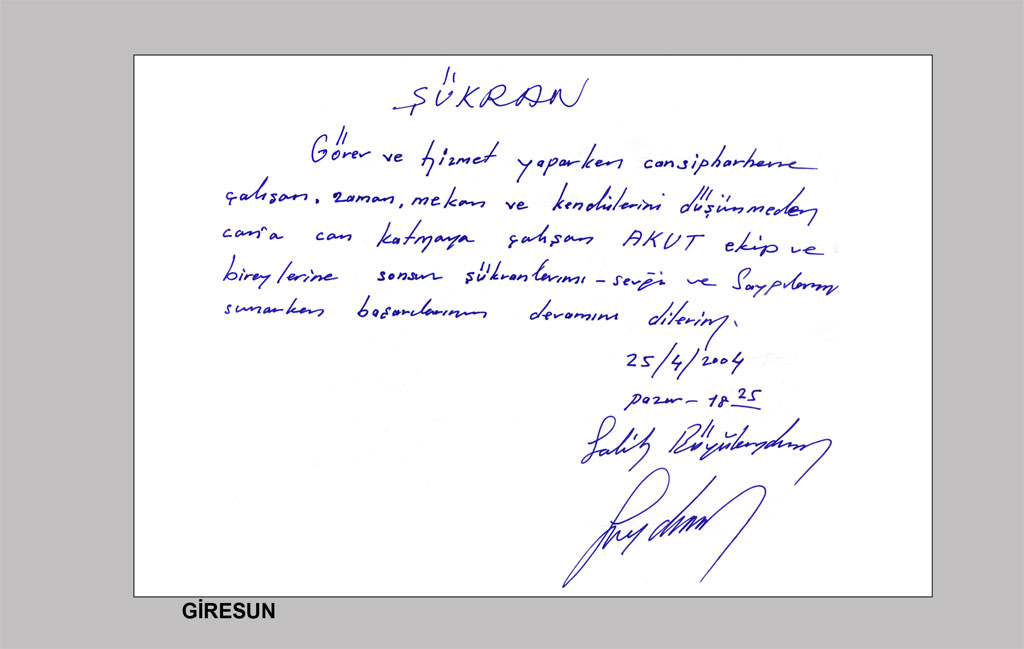 ŞÜKRAN
Görev ve hizmet yaparken cansiparhene
çalışan, zaman, mekan ve kendilerini düşünmeden
can'a can katmaya çalışan AKUT ekip ve
bireylerine sonsuz şükranlarımı - sevgi ve Saygılarımı
sunarken başarılarının devamını dilerim.
25/4/2004
pazar - 18 25
Salih
GİRESUN